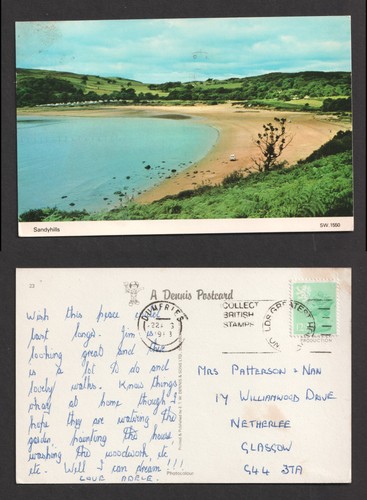 Sandyhills
SW. 1990
22
A Dennis Postcard
Wish this place could
last longer. Jim is
looking great and there
is a lot to do and
lovely walks. Know things
okay at home though I
hope they are watering the
garden, painting the house
washing the woodwork etc
etc. Well I can dream!!!
LOVE ADELE.
DUMFRIES
COLLECT
BRITISH
STAMPS
PRODUCTION
MRS PATTERSON & NAN
17 WILLIAMWOOD DRIVE
NETHERLEE
GLASGOW
G44 3TA
Photocolour